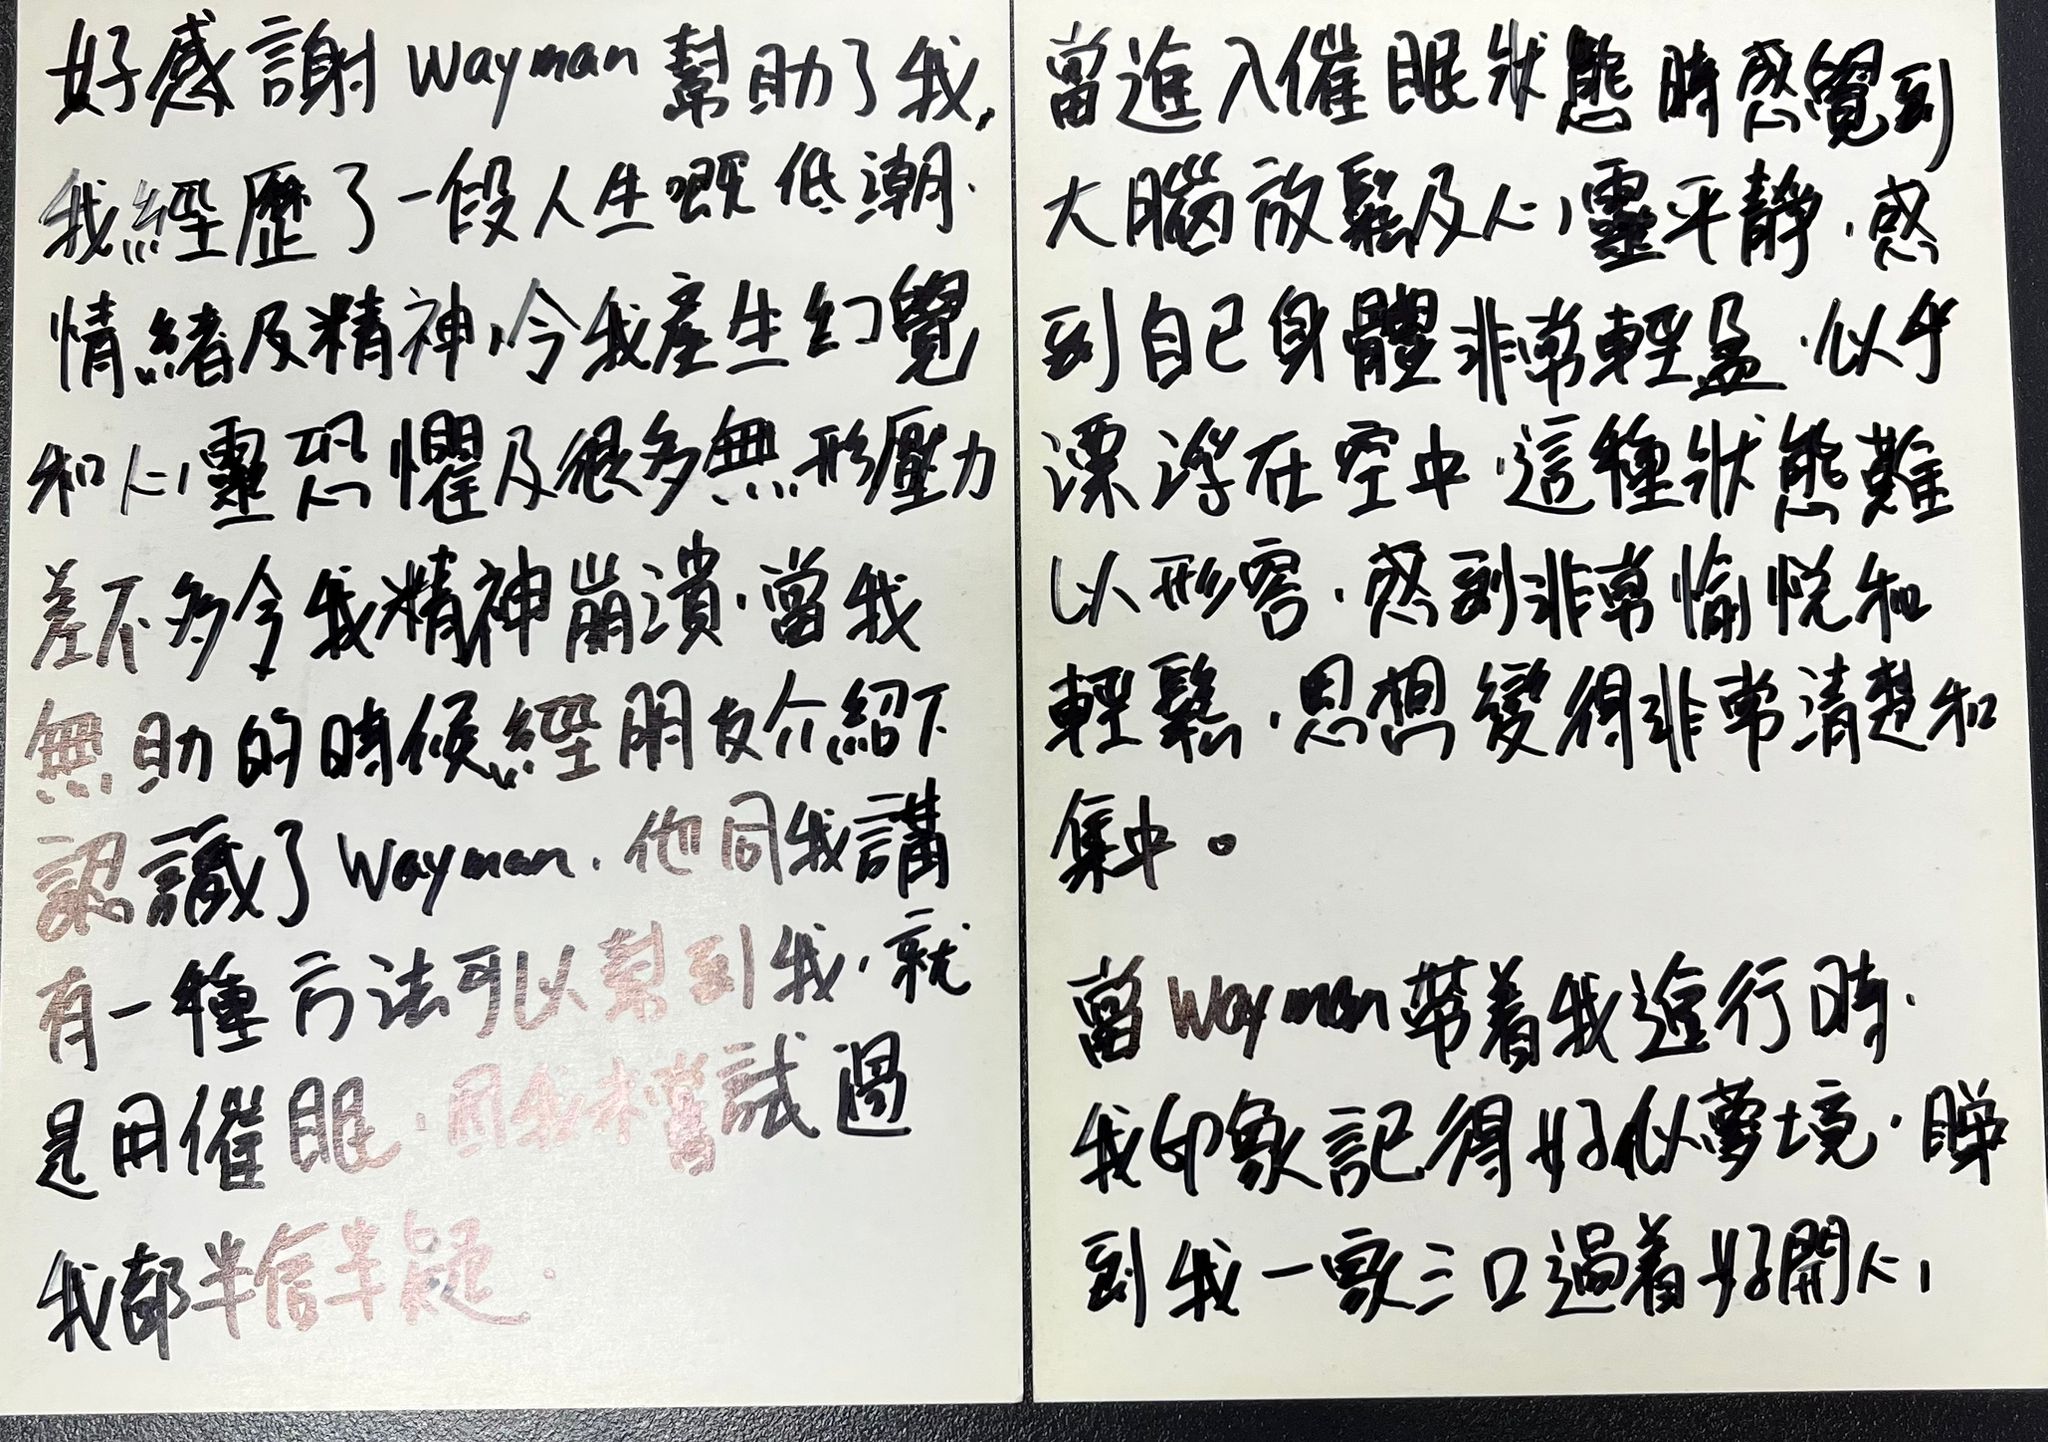 好感謝 Wayman 幫助了我,
我經歷了一段人生嘅低潮.
情緒及精神,令我產生幻覺
和心靈恐懼及很多無形壓力
差不多令我精神崩潰.當我
無助的時候經朋友介紹下
認識了 Wayman. 他同我講
有一種方法可以幫到我,就
是用催眠.因我未嘗試過
我都半信半疑.
當進入催眠狀態時感覺到
大腦放鬆及心靈平靜.感
到自己身體非常輕盈.似乎
漂浮在空中.這種狀態難
以形容.感到非常愉悅和
輕鬆.思想變得非常清楚和
集中。
當 Wayman 帶着我進行時.
我印象記得好似夢境.睇
到我一家三口過着好開心